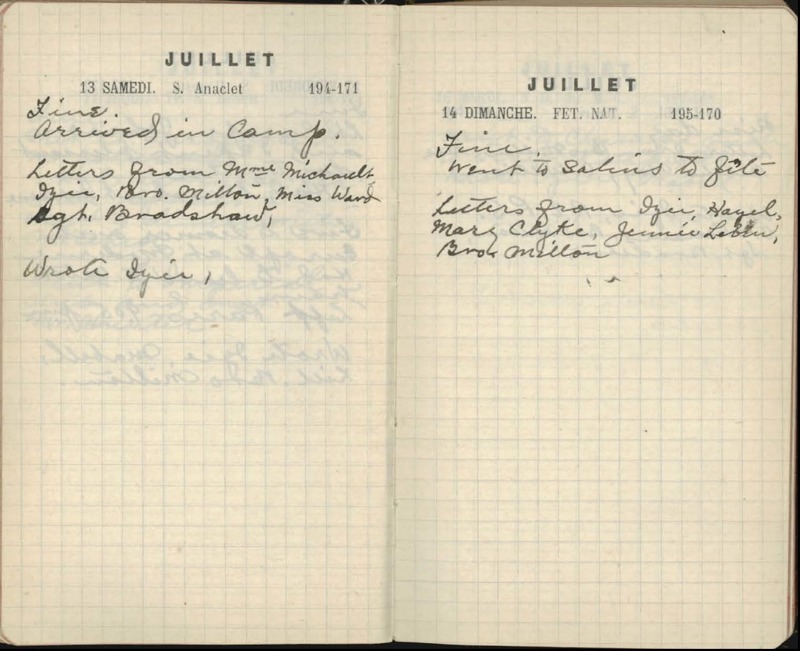 JUILLET
13 SAMEDI. S. Anaclet 194-171
Fine.
Arrived in Camp.
Letters from Mme Michault
Izie, Bro. Milton, Miss Ward
Sgt. Bradshaw,
Wrote Izie,
JUILLET
14 DIMANCHE. FET. NAT. 195-170
Fine.
Went to Salins to fête
Letters from Izie, Hazel,
Mary Clyke, Jennie
Bro. Milton